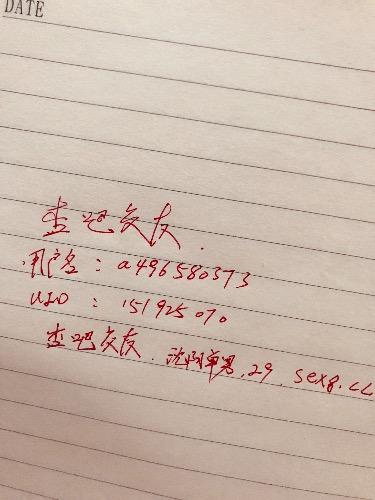 DATE
杏吧交友.
用户名：a496580373
UID：151925070
杏吧交友.沈阳单男.29.sex8.cc